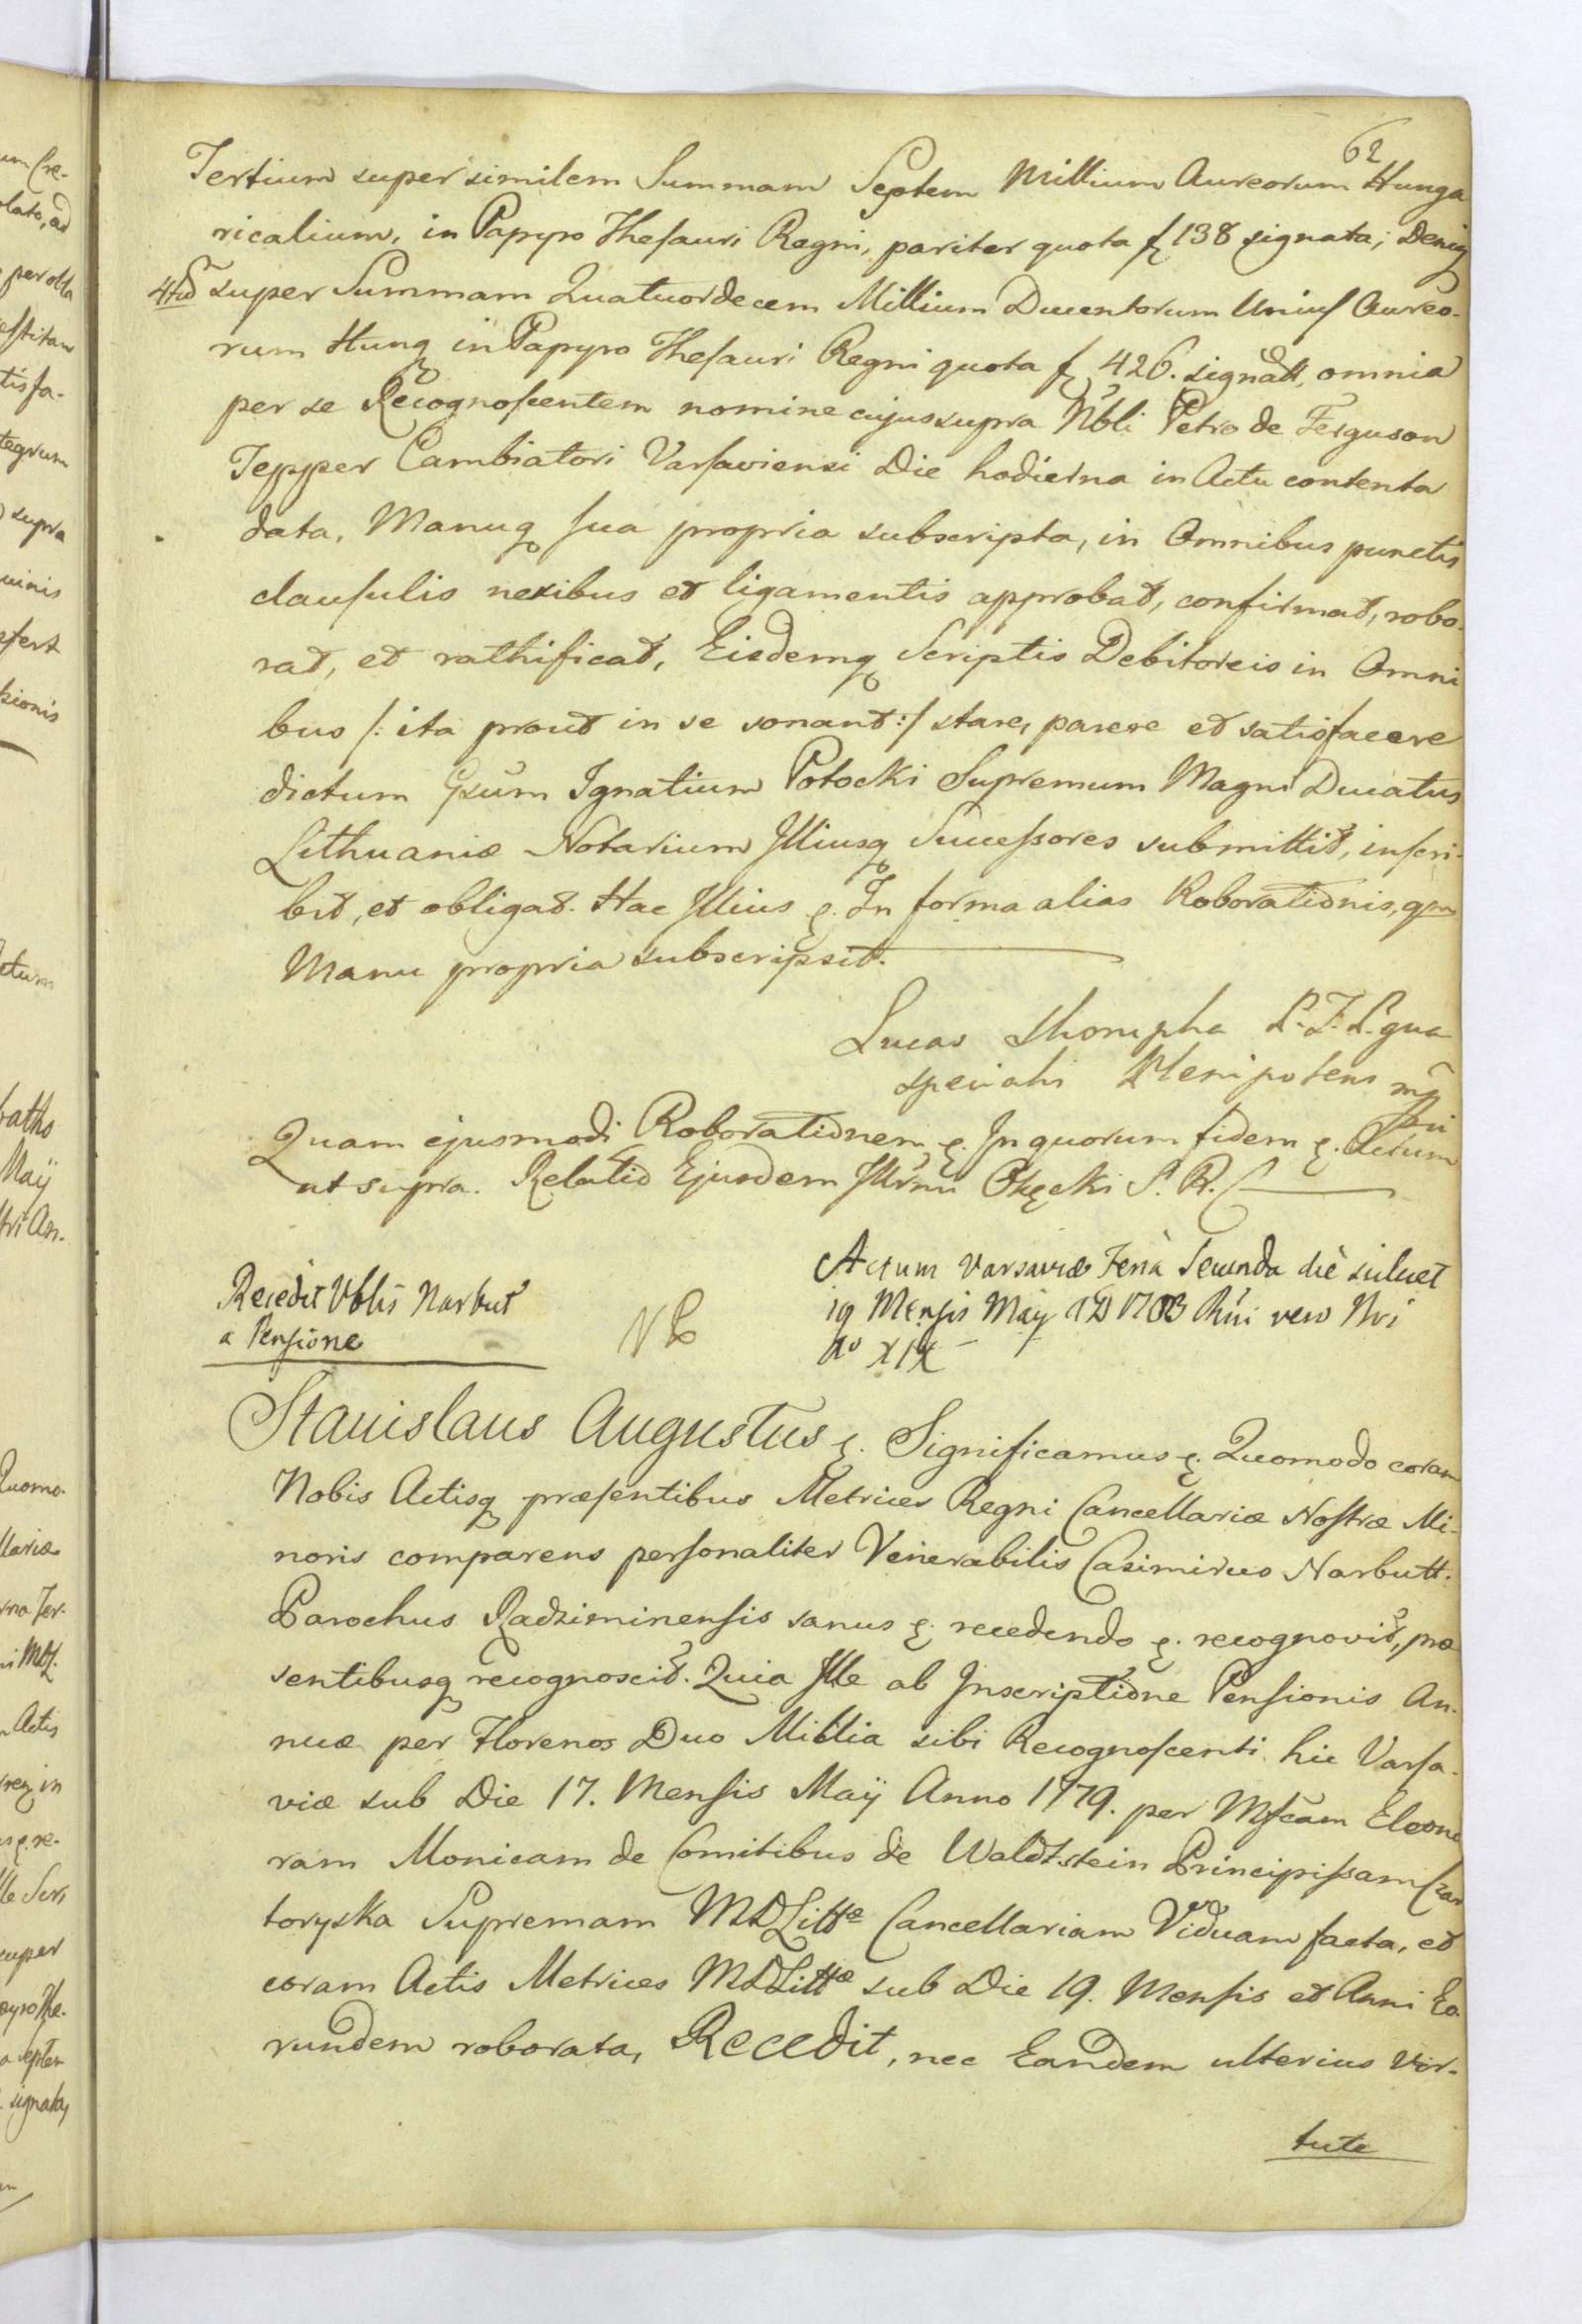 62
Tertium super similem Summam Septem Millium Aureorum Hunga
ricalium, in Papyro Thesauri Regni, pariter quota f 138 signata; Deniq
4tũ super Summam Quatuordecem Millium Ducentorum Unius Aureo-
rum Hung in Papyro Thesauri Regni quota f 426. signatt, omnia
per se Recognoscentem nomine cujus supra Nbli Petro de Ferguson
Tepper Cambiatori Varsaviensi Die hodierna in Actu contenta
data, Manuq sua propria subscripta, in Omnibus punctis
clausulis nexibus et ligamentis approbat, confirmat, robo-
rat, et rathificat, Eisdemq Scriptis Debitoreis in Omni
bus /: ita prout in se sonant :/ stare, parere et satisfacere
dictum Exũm Ignatium Potocki Supremum Magni Ducatus
Lithuaniæ Notarium Illiusq Successores submittit, inscri-
bit, et obligat. Hac Illius &. In forma alias Roborationis, qm
Manu propria subscripsit.
Lucas P. T. P. qua
specialis Plenipotens mp
Quam ejusmodi Roborationem &. In quorum fidem &. Actum
ut supra. Relatio Ejusdem Illrmi Okęcki S. R.
Recedit Vblis Narbut
a Pensione
Actum Varsaviæ Feria Secunda die scilicet
19 Mensis Maij AD 1783 Rńi vero Nri
Ao XIX
Stanislaus Augustus &. Significamus &. Quomodo coram
Nobis Actisq præsentibus Metrices Regni Cancellariæ Nostræ Mi-
noris comparens personaliter Venerabilis Casimirus Narbutt.
Parochus Radziminensis sanus &. recedendo &. recognovit, præ
sentibusq recognoscit. Quia Ille ab Inscriptione Pensionis An-
nuæ per Florenos Duo Millia sibi Recognoscenti hic Varsa-
viæ sub Die 17. Mensis Maij Anno 1779. per Mfcam Eleono
ram Monicam de Comitibus de Waldtstein Principissam Czar
toryska Supremam MDLittæ Cancellariam Viduam facta, et
coram Actis Metrices MDLittæ sub Die 19. Mensis et Anni Eo-
rundem roborata, Recedit, nec Eandem ulterius vir-
tute